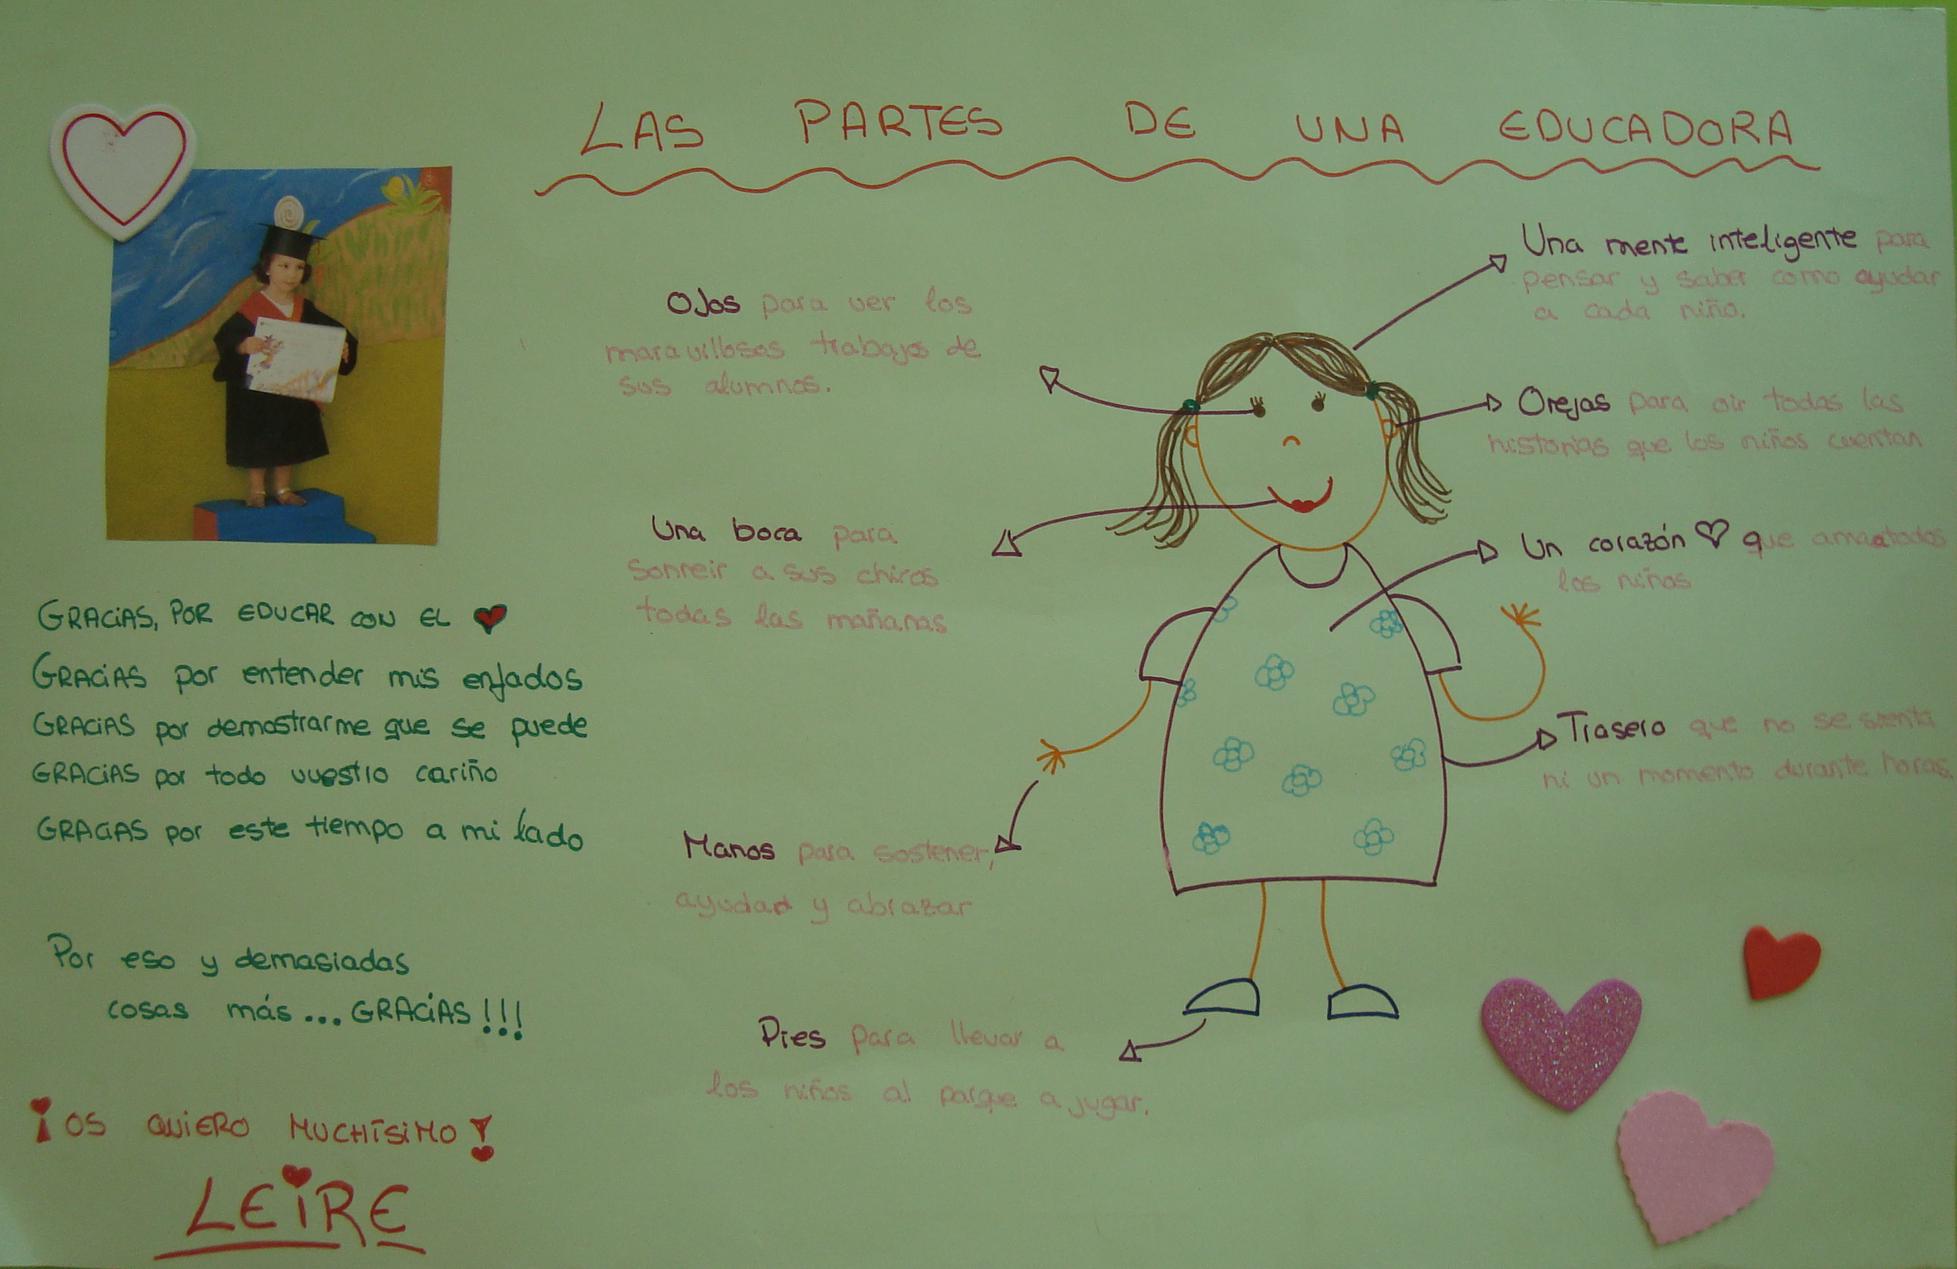 LAS PARTES DE UNA EDUCADORA
Ojos para ver los
maravillosos trabajos de
sus alumnos.
Una boca para
sonreir a sus chicos
todas las mañanas
Manos para sostener,
ayudad y abrazar
Pies para llevar a
los niños al parque a jugar.
Una mente inteligente para
pensar y saber como ayudar
a cada niño.
Orejas para oir todas las
historias que los niños cuentan
Un corazón que ama a todos
los niños
Trasero que no se sienta
ni un momento durante horas
GRACIAS, POR EDUCAR CON EL
GRACIAS por entender mis enfados
GRACIAS por demostrarme que se puede
GRACIAS por todo vuestro cariño
GRACIAS por este tiempo a mi lado
Por eso y demasiadas
cosas más...GRACIAS!!!
¡OS QUIERO MUCHÍSIMO!
LEIRE